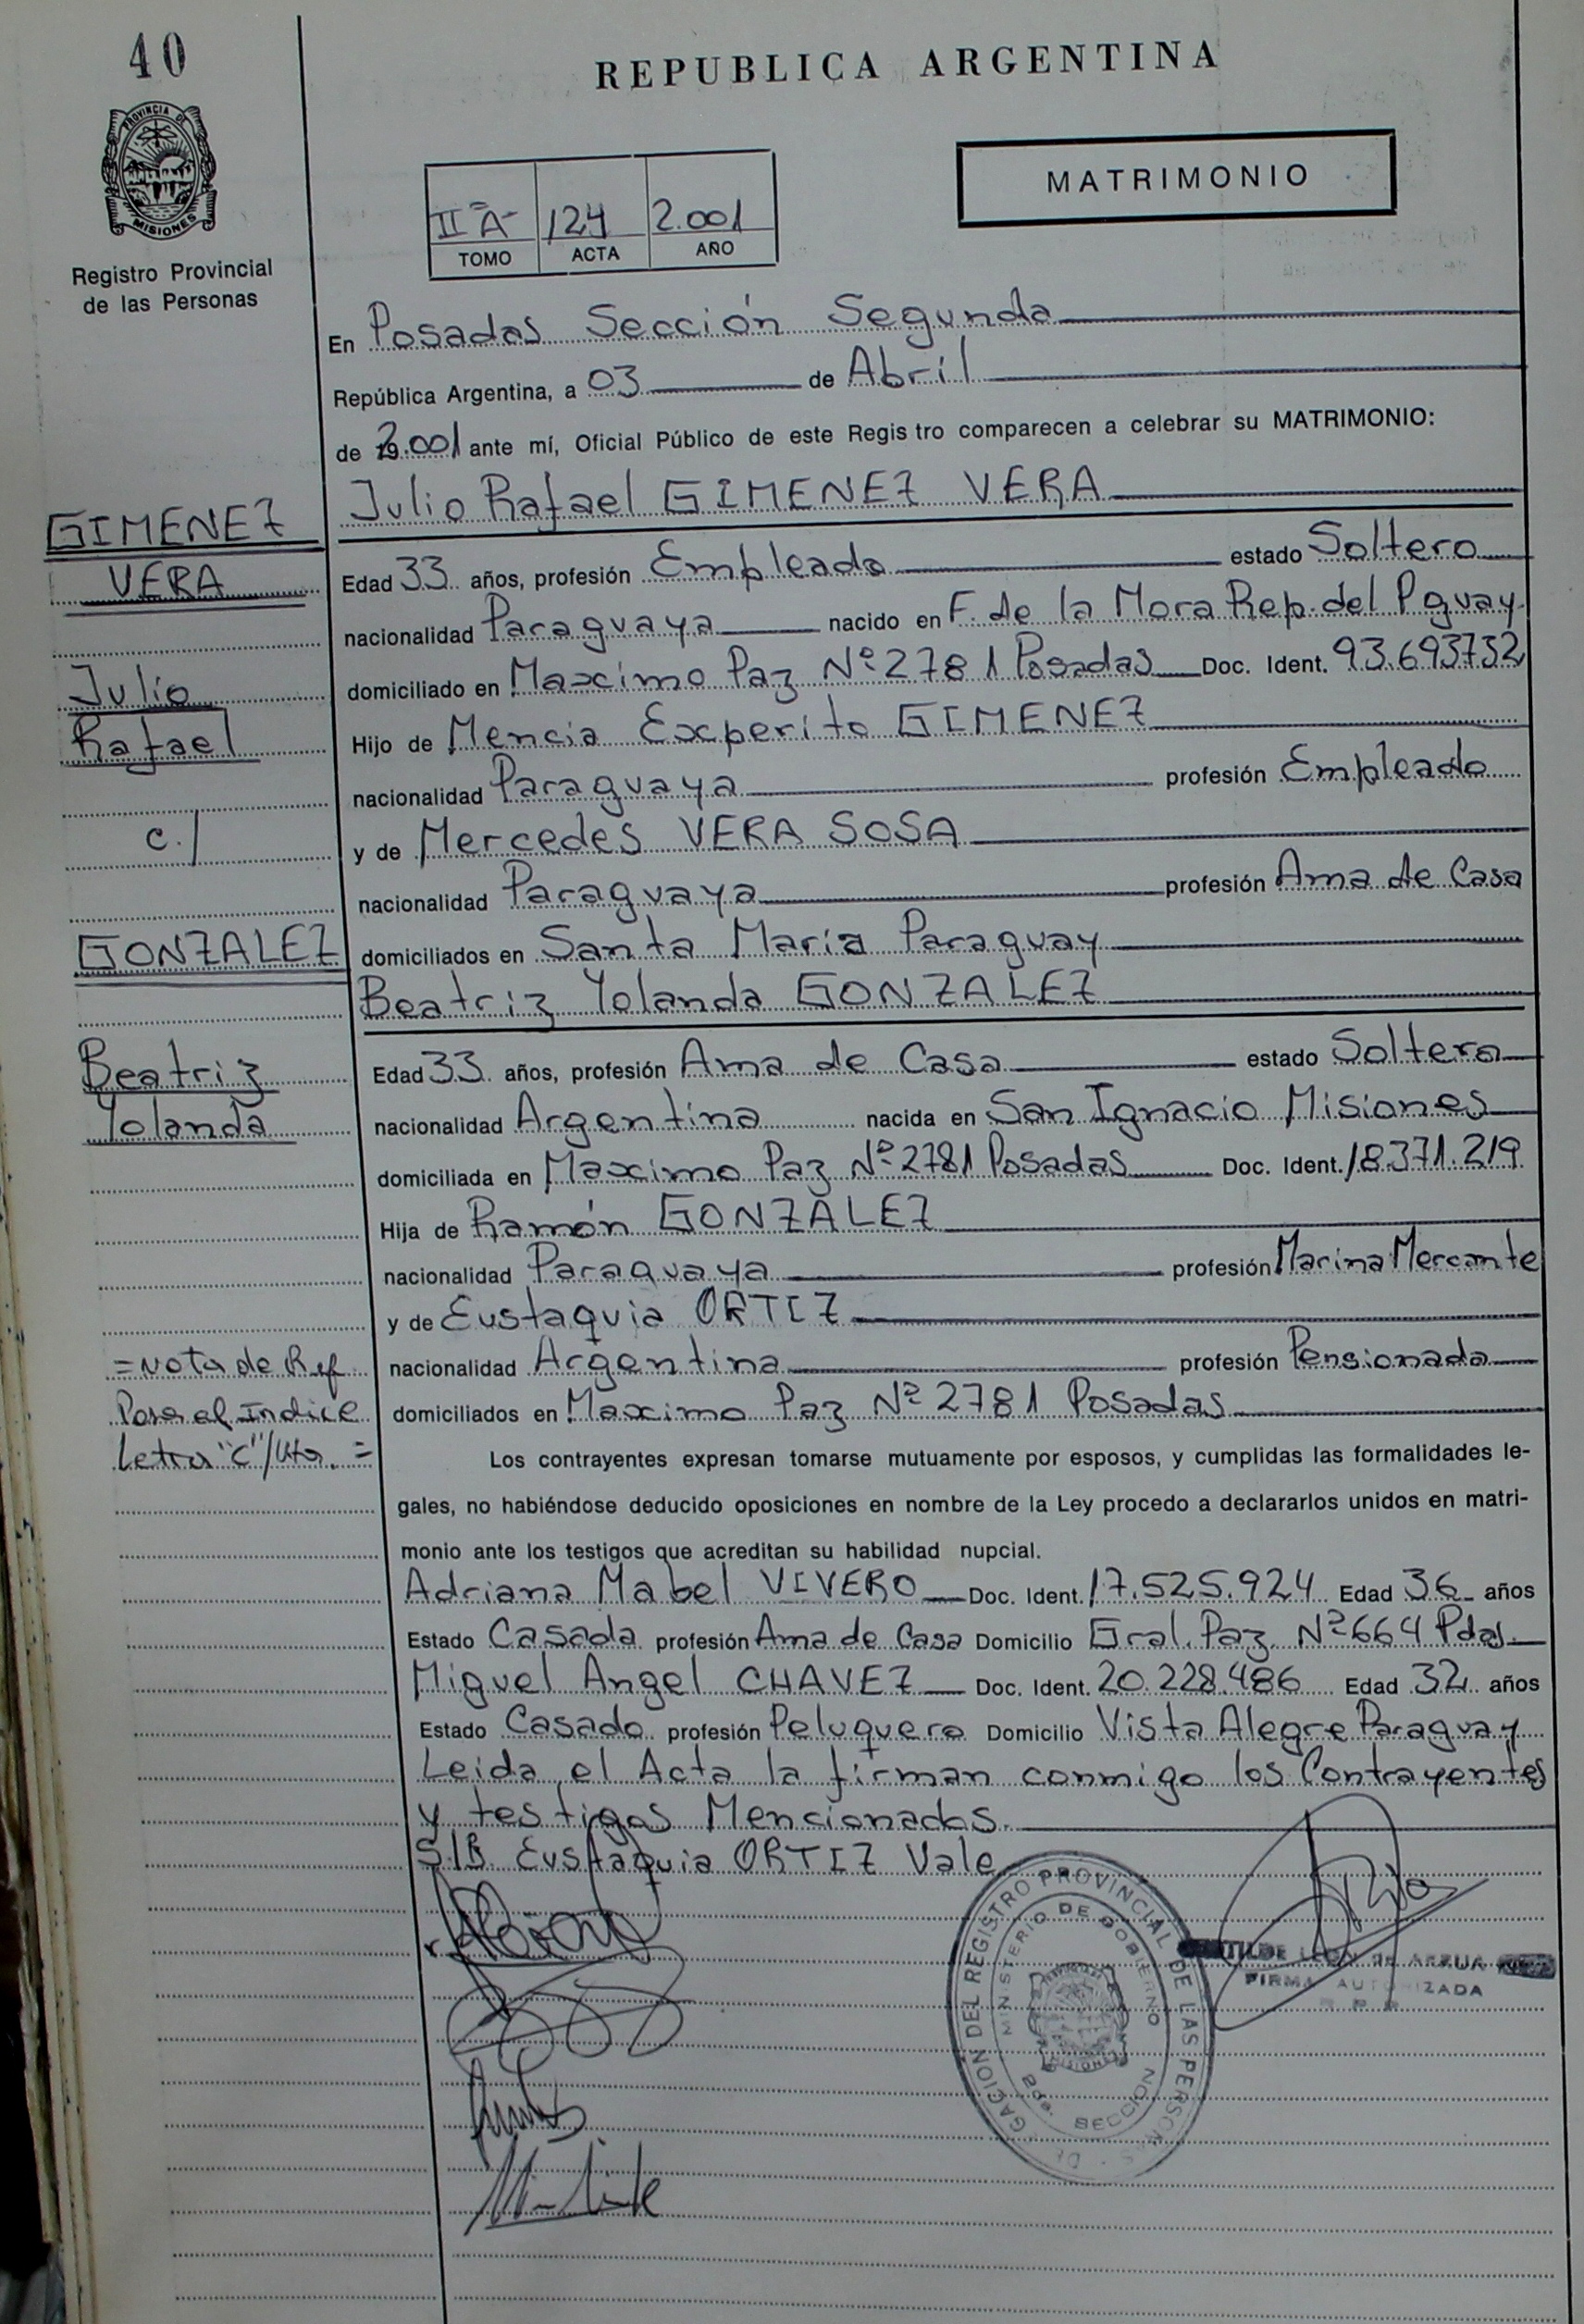 40
REPUBLICA ARGENTINA
PROVINCIA DE
MISIONES
MATRIMONIO
IIª A- 124 2.001
TOMO ACTA AÑO
Registro Provincial
de las Personas
En Posadas Sección Segunda
República Argentina, a 03 de Abril
de 2.001 ante mí, Oficial Público de este Regis tro comparecen a celebrar su MATRIMONIO:
Julio Rafael GIMENEZ VERA
GIMENEZ
VERA
Edad 33 años, profesión Empleado estado Soltero
nacionalidad Paraguaya nacido en F. de la Mora Rep. del Pguay
Julio
domiciliado en Maximo Paz Nº 2781 Posadas Doc. Ident. 93.693732
Rafael
Hijo de Mencia Experito GIMENEZ
nacionalidad Paraguaya profesión Empleado
c./
y de Mercedes VERA SOSA
nacionalidad Paraguaya profesión Ama de Casa
GONZALEZ
domiciliados en Santa María Paraguay
Beatriz Yolanda GONZALEZ
Beatriz
Yolanda
Edad 33 años, profesión Ama de Casa estado Soltera
nacionalidad Argentina nacida en San Ignacio Misiones
domiciliada en Maximo Paz Nº 2781 Posadas Doc. Ident. 18.371.219
Hija de Ramón GONZALEZ
nacionalidad Paraguaya profesión Marina Mercante
y de Eustaquia ORTIZ
=Nota de Ref
nacionalidad Argentina profesión Pensionada
Para el Indice
domiciliados en Maximo Paz Nº 2781 Posadas
Letra "C"/ =
Los contrayentes expresan tomarse mutuamente por esposos, y cumplidas las formalidades le-
gales, no habiéndose deducido oposiciones en nombre de la Ley procedo a declararlos unidos en matri-
monio ante los testigos que acreditan su habilidad nupcial.
Adriana Mabel VIVERO Doc. Ident. 17.525.924 Edad 36 años
Estado Casada profesión Ama de Casa Domicilio Gral. Paz Nº 664 Pdas.
Miguel Angel CHAVEZ Doc. Ident. 20.228.486 Edad 32 años
Estado Casado profesión Peluquero Domicilio Vista Alegre Paraguay
Leida el Acta la firman conmigo los Contrayentes
y testigos Mencionados.
S/B Eustaquia ORTIZ Vale
DEL REGISTRO PROVINCIAL DE LAS PERSONAS
MINISTERIO DE GOBIERNO
SECCION
MISIONES
LEON DE ARZUA
FIRMA AUTORIZADA